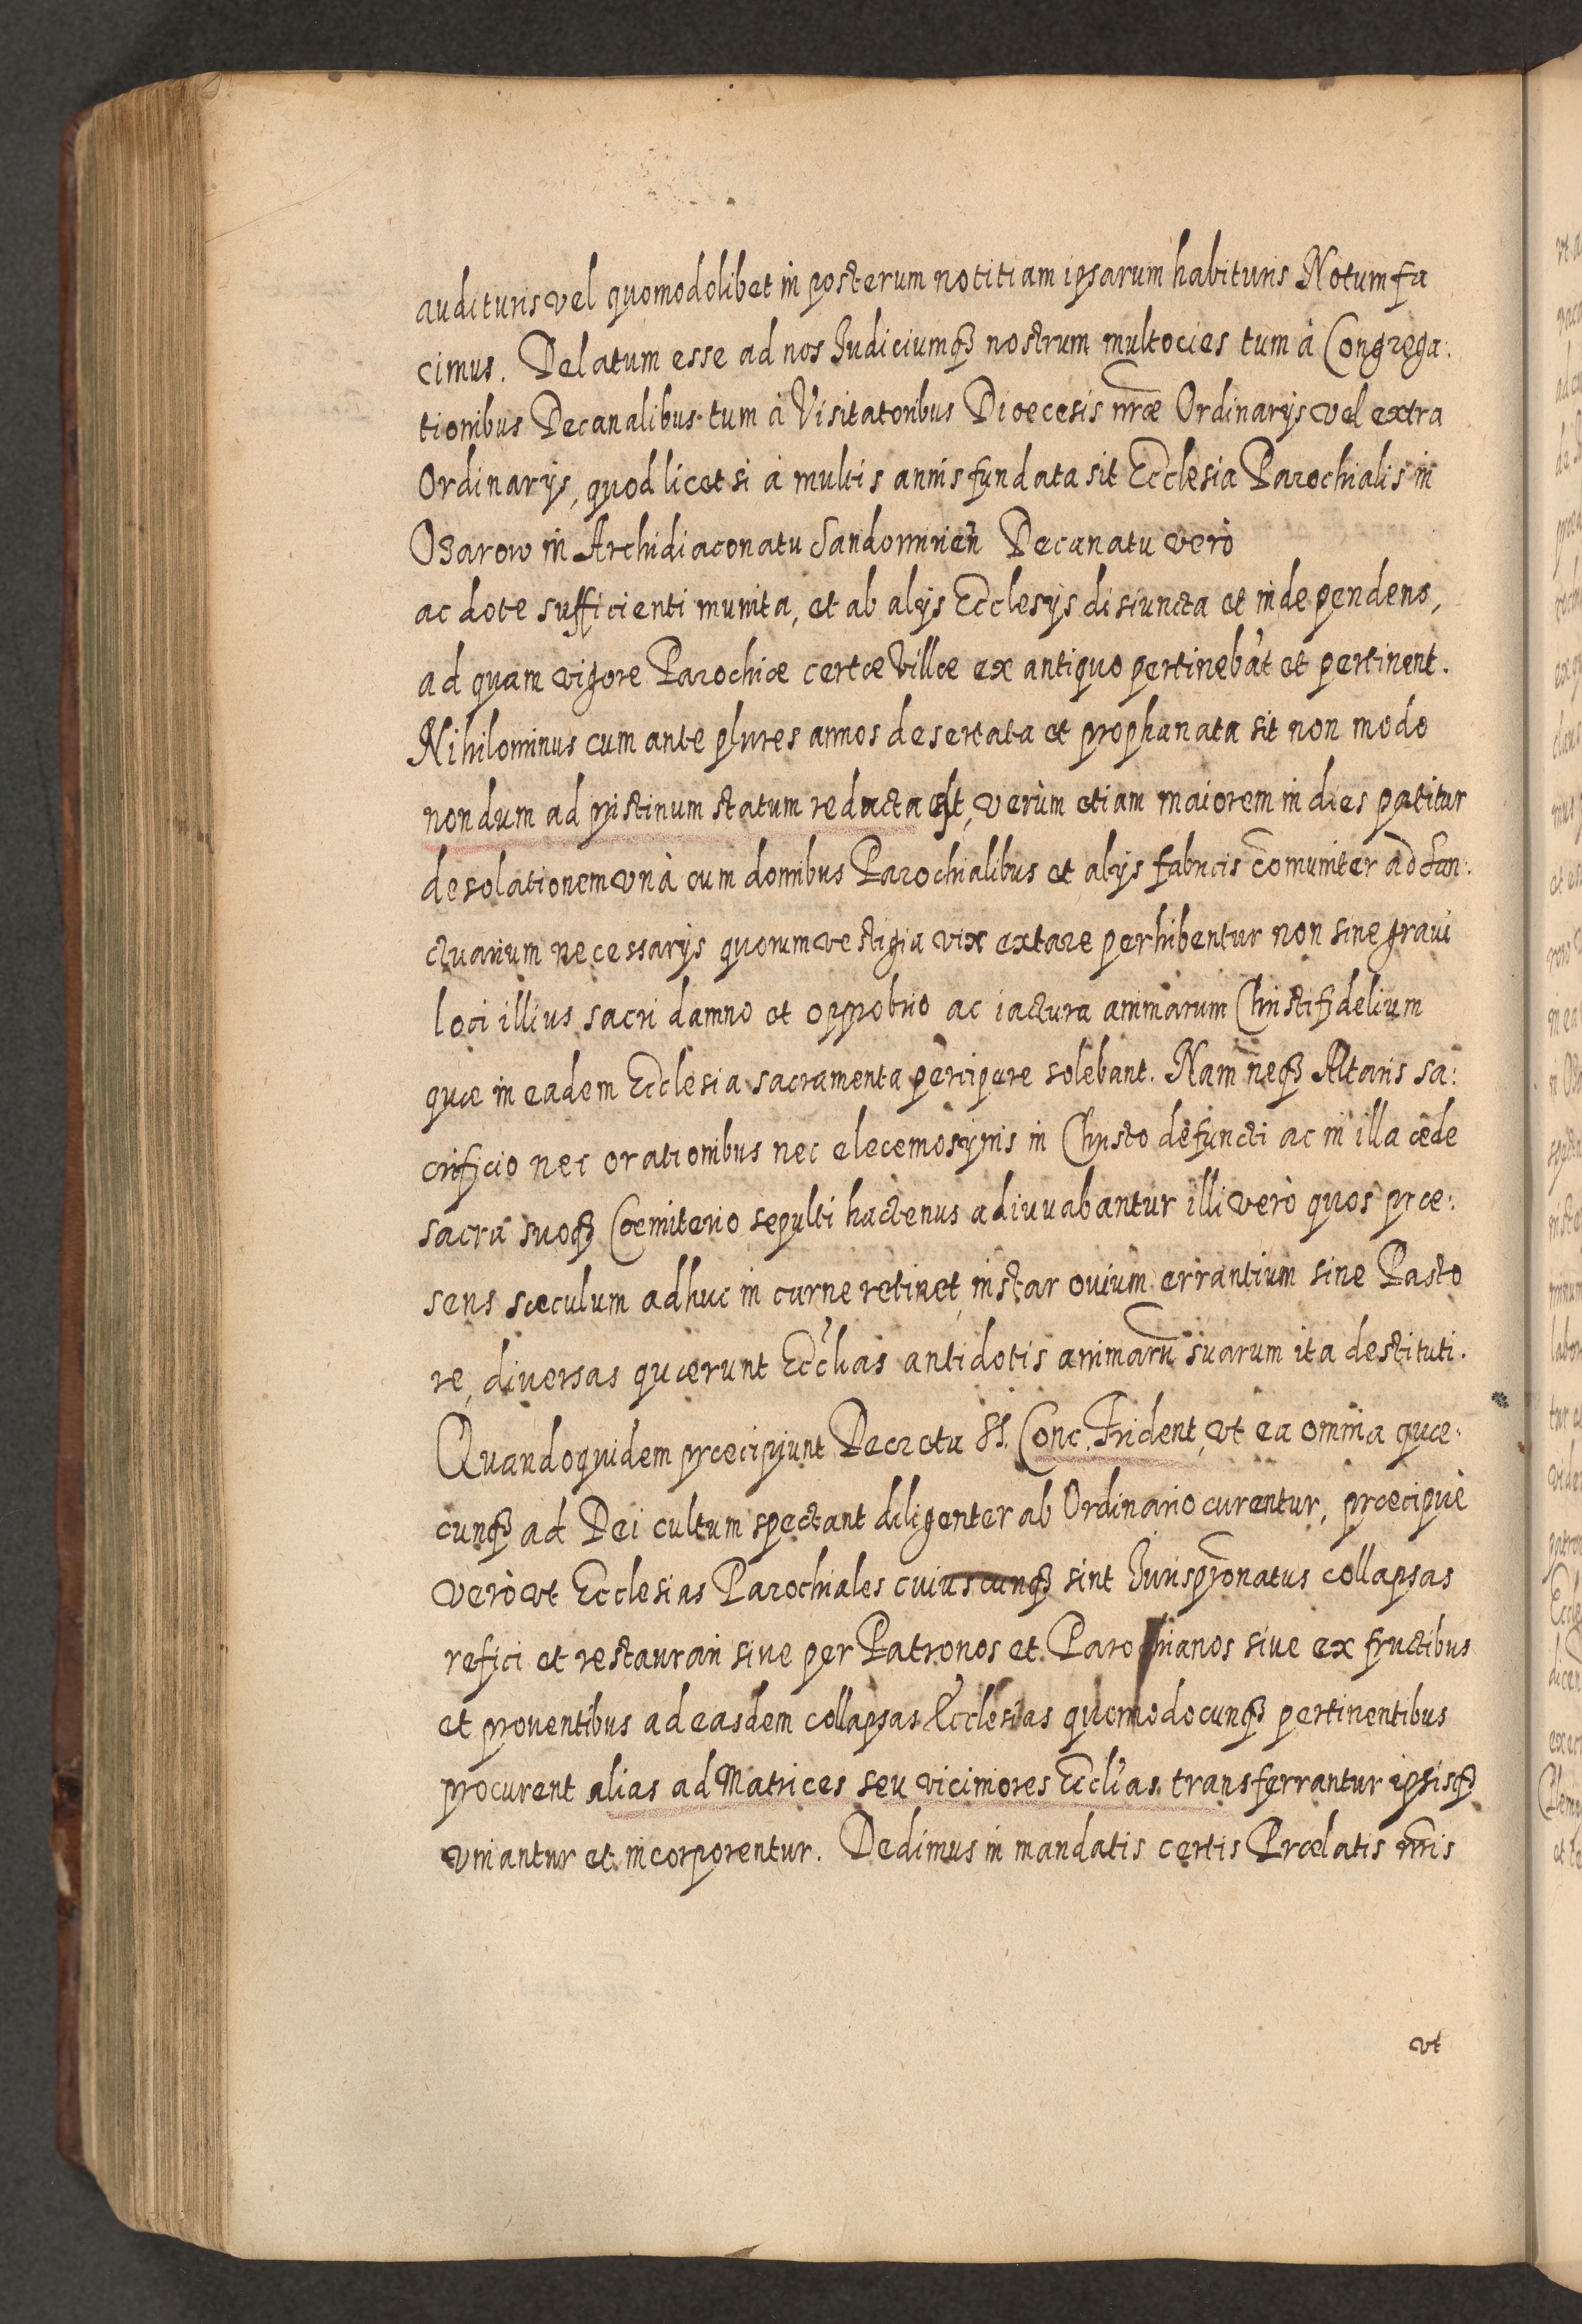 audituris vel quomodolibet in posterum notitiam ipsarum habituris Notum fa
cimus. Delatum esse ad nos Judiciumqꝫ nostrum multocies tum à Congrega:
tionibus Decanalibus tum à Visitatoribus Dioecesis nr̃æ Ordinarijs vel extra
Ordinarijs, quod licet si à multis annis fundata sit Ecclesia Parochialis in
Ozarow in Archidiaconatu Sandomirieñ Decanatu verò
ac dote sufficienti munita, et ab alijs Ecclesijs disiuncta et independens,
ad quam vigore Parochiæ certæ Villæ ex antiquo pertinebāt et pertinent.
Nihilominus cum ante plures annos desertata et prophanata sit non modo
nondum ad pristinum statum redacta est, verùm etiam maiorem in dies patitur
desolationem vnà cum domibus Parochialibus et alijs fabricis com̃uniter ad San:
ctuarium necessarijs quorum vestigia vix extare perhibentur non sine graui
loci illius sacri damno et opprobrio ac iactura animarum Christifidelium
quæ in eadem Ecclesia sacramenta percipere solebant. Nam neqꝫ Altaris sa:
crificio nec orationibus nec eleemosynis in Christo defuncti ac in illa æde
sacra suoqꝫ Cœmiterio sepulti hactenus adiuuabantur illi verò quos præ:
sens sæculum adhuc in carne retinet, instar ouium errantium sine Pasto
re, diuersas quærunt Eccl̃ias antidotis animarũ suarum ita destituti.
Quandoquidem præcipiunt Decreta SS. Conc. Trident, vt ea omnia quæ:
cunqꝫ ad Dei cultum spectant diligenter ab Ordinario curentur, præcipuè
verò vt Ecclesias Parochiales cuiuscunqꝫ sint Jurispr̃onatus collapsas
refici et restaurari siue per Patronos et Parochianos siue ex fructibus
et prouentibus ad easdem collapsas Ecclesias quomodocunqꝫ pertinentibus
procurent alias ad Matrices seu viciniores Eccl̃ias transferrantur ipsisqꝫ
vniantur et incorporentur. Dedimus in mandatis certis Prælatis nr̃is
vt